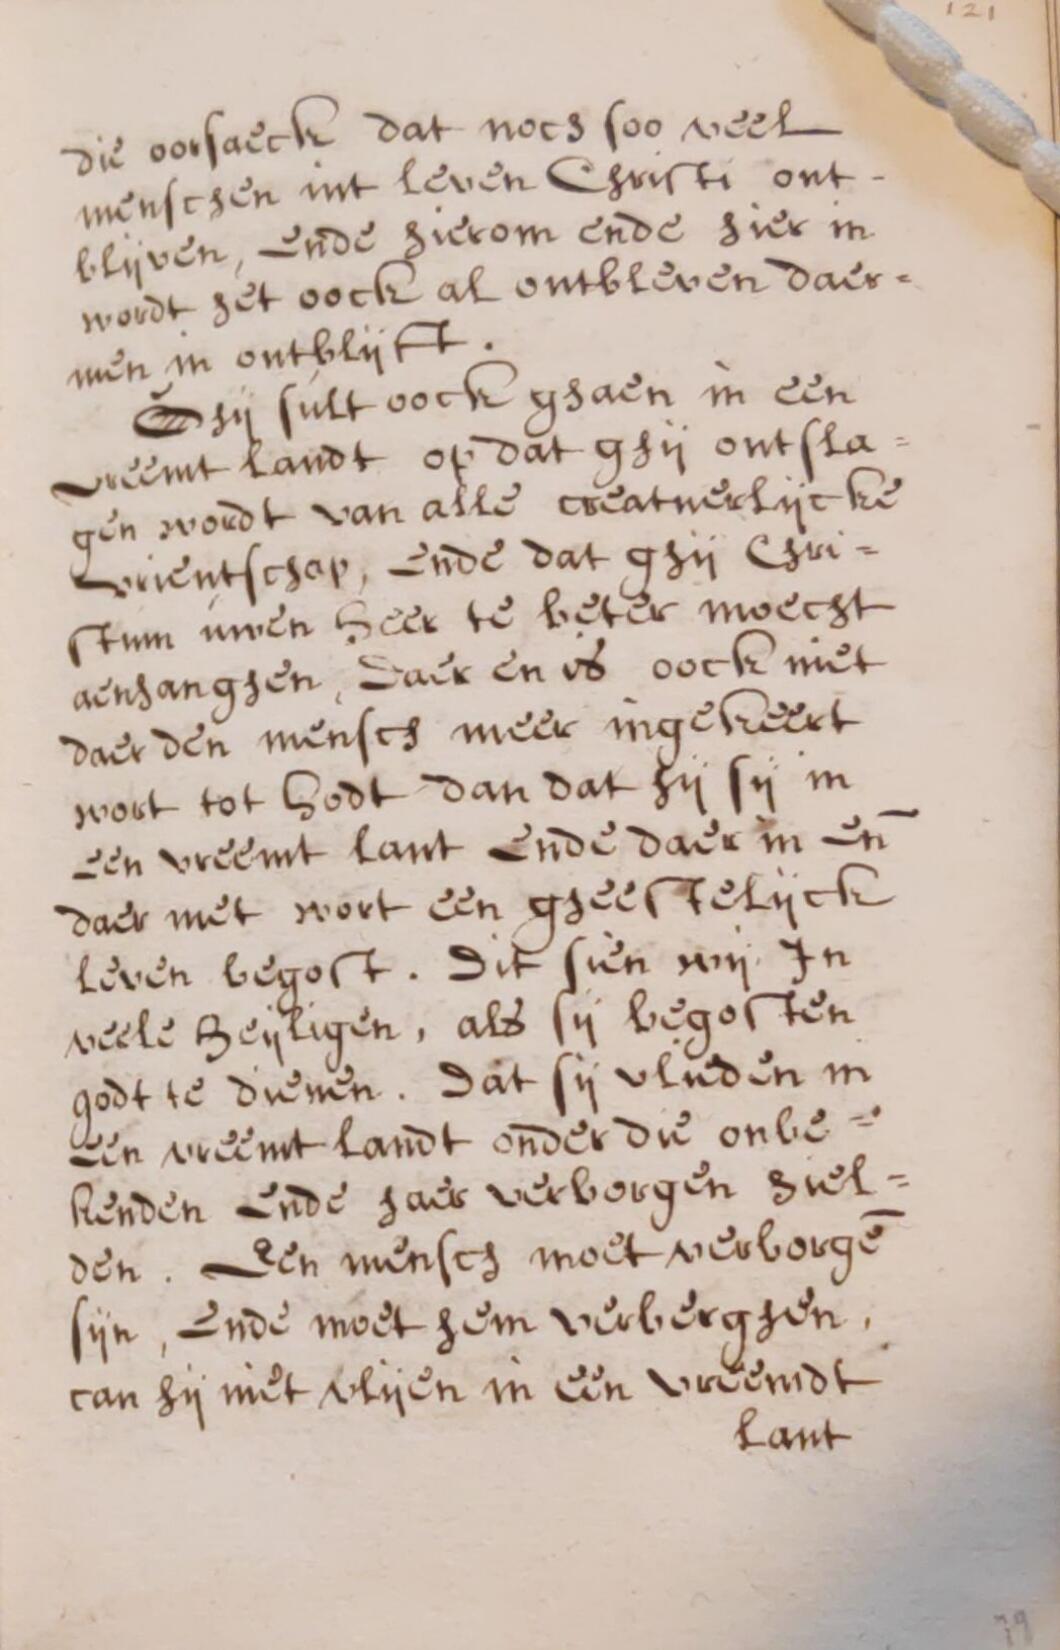 121
die oorsaeck dat noch soo veel
menschen int leven Christi ont-
blijven, Ende hierom ende hier in
wordt het oock al ontbleven daer=
men in ontblijft.
Ghij sult oock ghaen in een
vreemt landt op dat ghij ontsla=
gen wordt van alle creatuerlijcke
vrientschap, Ende dat ghij Chri=
stum uwen Heer te beter moecht
aenhanghen, Daer en is oock niet
daer den mensch meer ingekeert
wort tot Godt dan dat hij sij in
Een vreemt lant Ende daer in En̄
daer met wort een gheestelijck
leven begost. Dit sien wij In
veele Heijligen, als sij begosten
godt te dienen. Dat sij vluden in
Een vreemt landt onder die onbe=
kenden Ende haer verborgen hiel=
den. Een mensch moet verborgē
sijn, Ende moet hem verberghen,
can hij niet vlijen in een vreemdt
lant